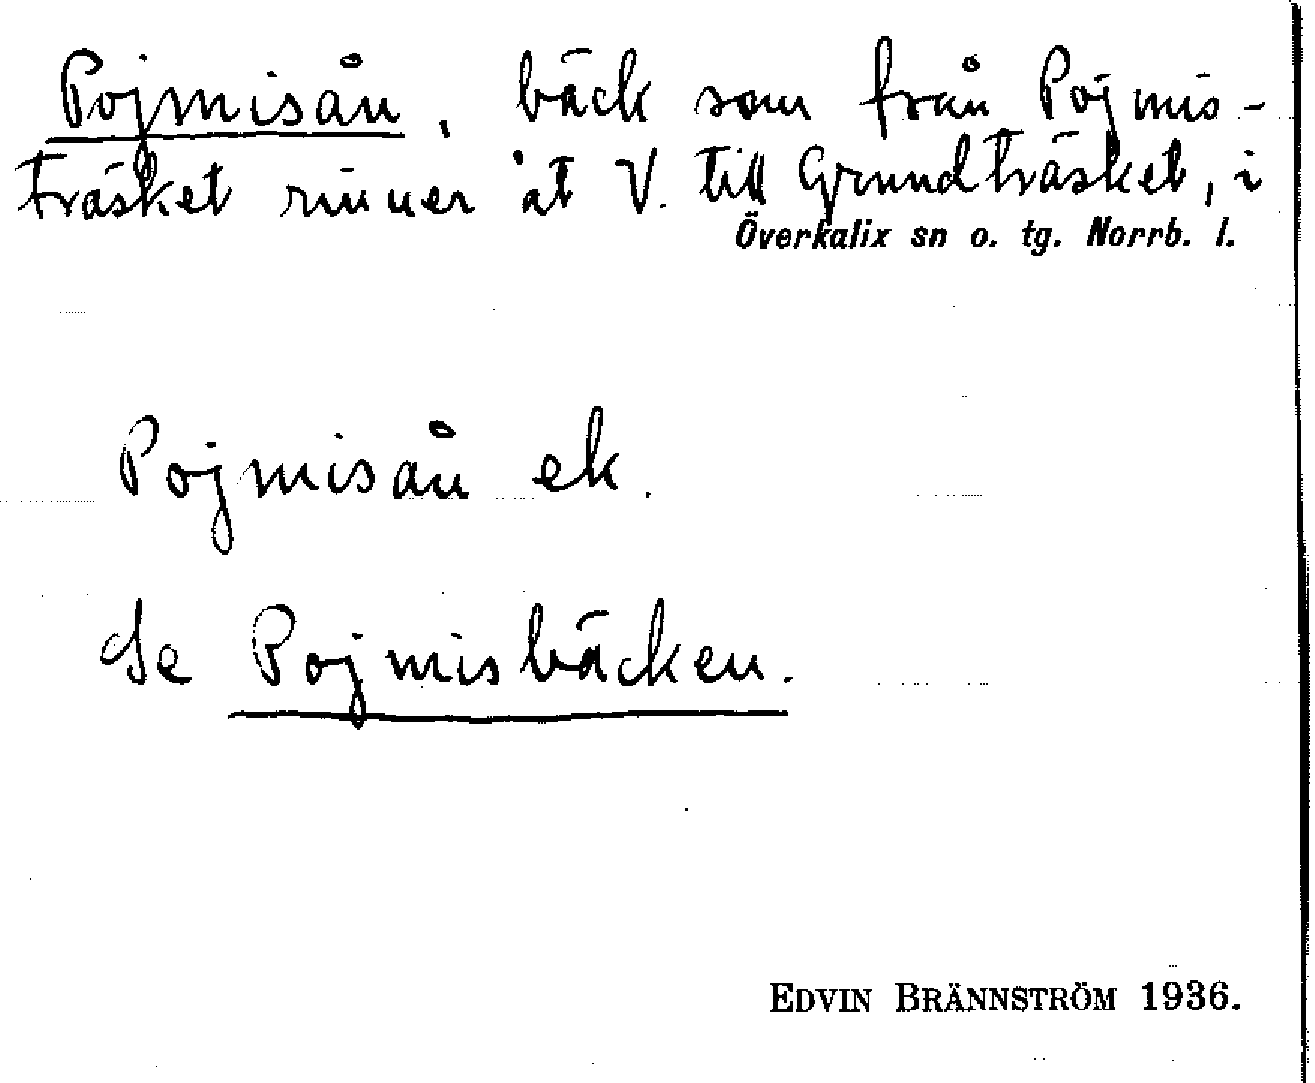 Pojmisån, bäck som från Pojmis-
träsket rinner åt V. till Grundträsket, i
Överkalix sn o. tg. Norrb. l.
Pojmisån ek.
Se Pojmisbäcken.
EDVIN BRÄNNSTRÖM 1936.